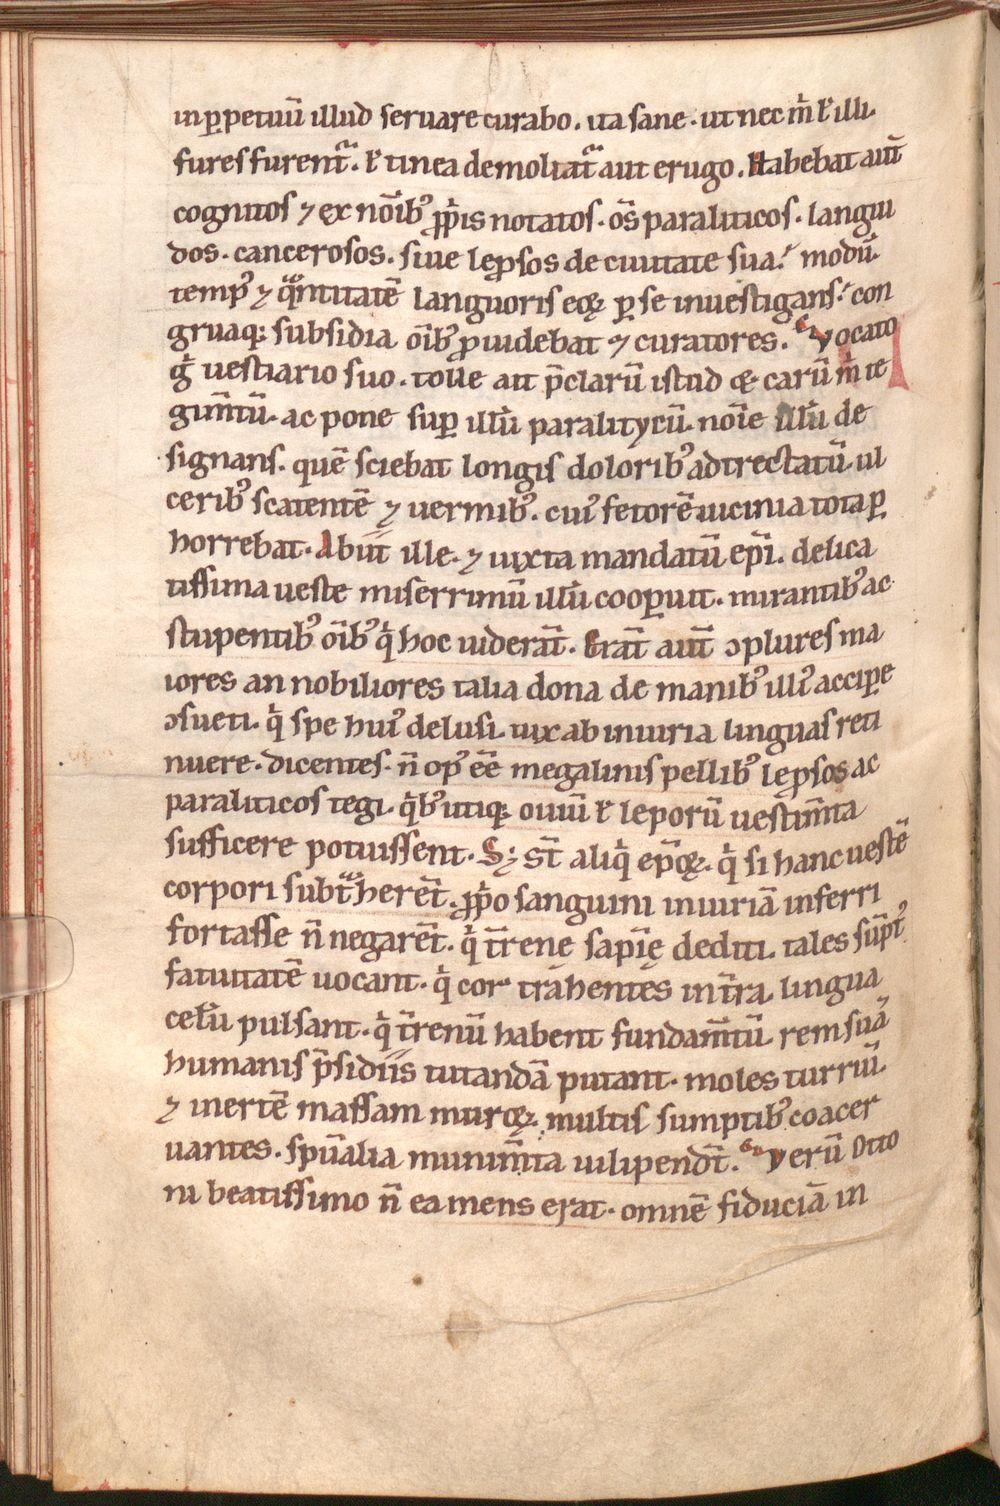 inꝑpetuū illud seruare curabo. ita sane. ut nec m̄ ł illi
fures furentᷓ. ł tinea demoliatᷓ aut erugo. Habebat aut̄
cognitos ⁊ ex noı̄ibꝰ ꝓpⁱis notatos. oms̄ paraliticos. langui
dos. cancerosos. siue lep̄sos de ciuitate sua. modū.
tempꝰ ⁊ qᷓntitatē languoris eoꝝ ꝑ se inuestigans. con
gruaq; subsidia oı̄ibꝰ ꝓuidebat ⁊ curatores. Vocato
gͦ uestiario suo. tolle ait p̄clarū istud & carū m̄ te
gim̄tū. ac pone suꝑ illū paralitycū. noı̄e illū de
signans. quē sciebat longis doloribꝰ adtrectatū. ul
ceribꝰ scatentē ⁊ uermibꝰ. cuiꝰ fetorē uicinia tota ꝑ
horrebat. Abiit ille. ⁊ iuxta mandatū ep̄i. delica
tissima ueste miserrimū illū cooꝑuit. mirantibꝰ ac
stupentibꝰ oı̄ibꝰ qⁱ hoc uiderāt. Erāt aut̄ ꝯplures ma
iores an nobiliores talia dona de manibꝰ illiꝰ acciꝑe
ꝯsueti. qⁱ spe huiꝰ delusi. uix ab iniuria linguas reti
nuere. dicentes. n̄ opꝰ ēē megalinis pellibꝰ lep̄sos ac
paraliticos tegi. qⁱbꝰ utiq; ouiū ł leporū uestim̄ta
sufficere potuissent. Sꝫ st̄ aliqⁱ ep̄oꝝ. qⁱ si hanc uestē
corpori subtᷓherēt. ꝓpⁱo sanguini iniuriā inferri
fortasse n̄ negarēt. qⁱ t̄rene sapīę dediti. tales sūptꝰ
fatuitatē uocant. qⁱ cor trahentes in t̄ra. lingua
celū pulsant. qⁱ t̄renū habent fundam̄tū. rem suā
humanis p̄sidiis tutandā putant. moles turriū.
⁊ inertē massam muroꝝ. multis sumptibꝰ coacer
uantes. sp̄ualia munim̄ta uilipendt̄. Verū Otto
ni beatissimo n̄ ea mens erat. omnē fiduciā in